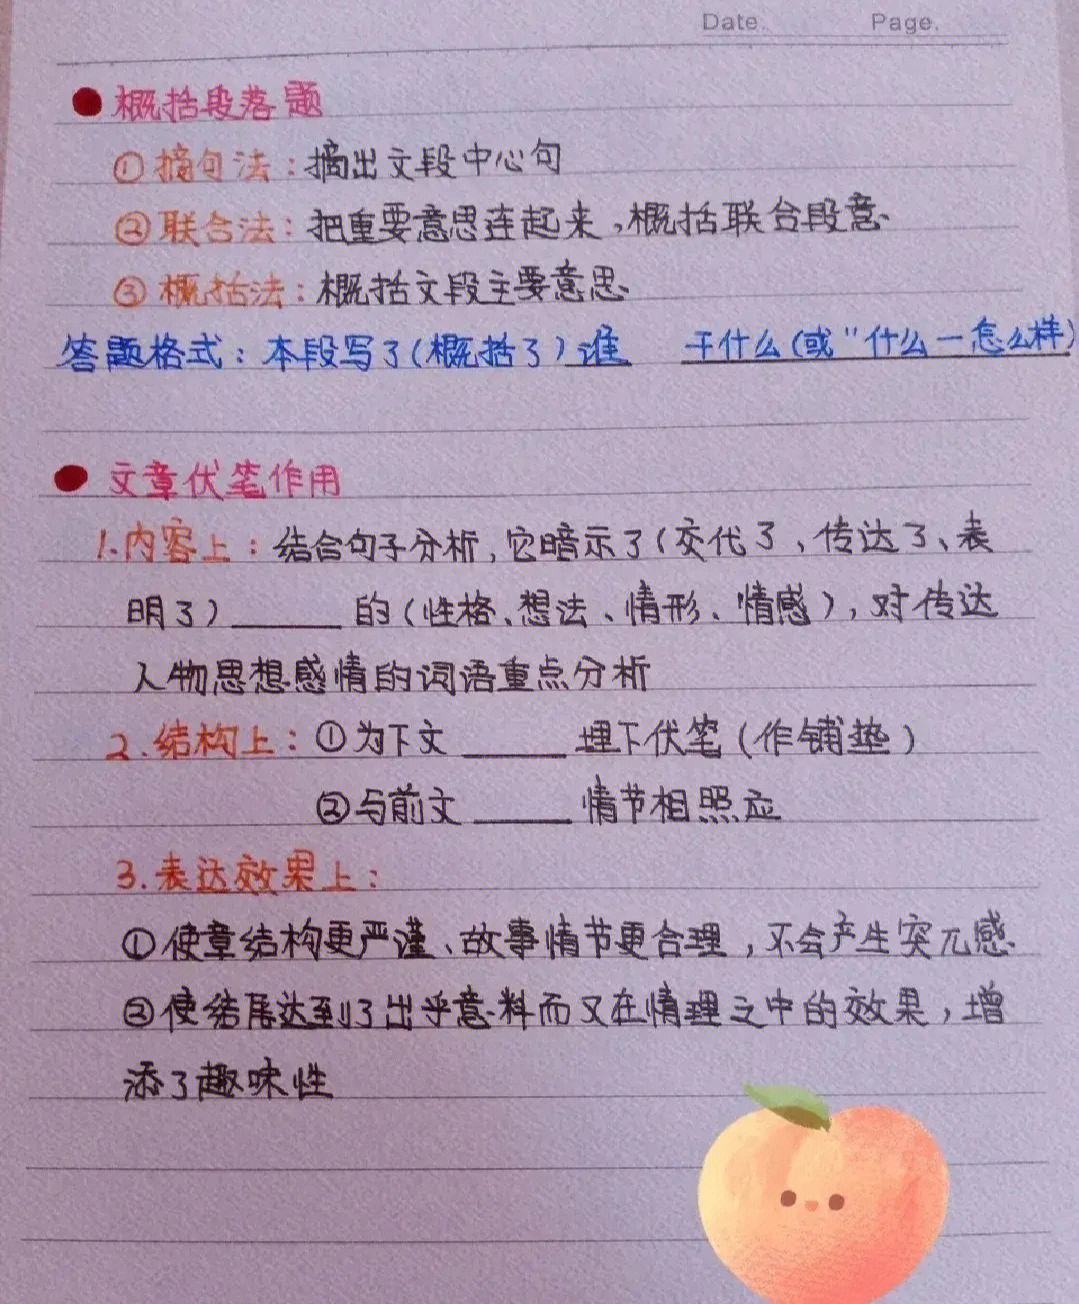 Date. Page.
概括段落题
①摘句法：摘出文段中心句
②联合法：把重要意思连起来，概括联合段意.
③概括法：概括文段主要意思.
答题格式：本段写了(概括了)谁 干什么(或"什么一怎么样)
文章伏笔作用
1.内容上：结合句子分析,它暗示了(交代了、传达了、表
明了)______的(性格、想法、情形、情感)，对传达
人物思想感情的词语重点分析
2.结构上：①为下文______埋下伏笔(作铺垫)
②与前文______情节相照应
3.表达效果上：
①使章结构更严谨、故事情节更合理，不会产生突兀感.
②使结尾达到了出乎意料而又在情理之中的效果，增
添了趣味性